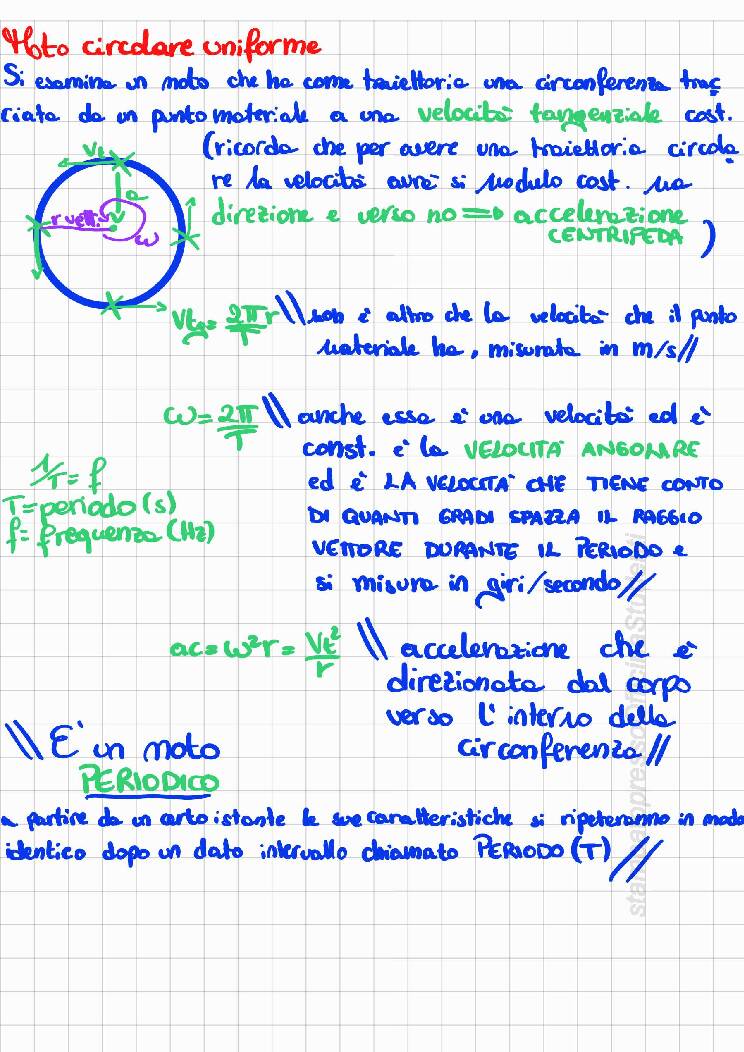 Moto circolare uniforme
Si esamina un moto che ha come traiettoria una circonferenza trac
ciata da un punto materiale a una velocità tangenziale cost.
(ricorda che per avere una traiettoria circola
re la velocità avrà si modulo cost. ma
direzione e verso no => accelerazione
CENTRIPEDA )
Vt
a
r vett.
ω
Vtg = 2πr/T \\ non è altro che la velocità che il punto
materiale ha, misurata in m/s//
ω = 2π/T \\ anche essa è una velocità ed è
const. è la VELOCITÀ ANGOLARE
ed è LA VELOCITÀ CHE TIENE CONTO
DI QUANTI GRADI SPAZZA IL RAGGIO
VETTORE DURANTE IL PERIODO e
si misura in giri/secondo//
1/T = f
T = periodo (s)
f = frequenza (Hz)
ac = ω²r = Vt²/r \\ accelerazione che è
direzionata dal corpo
verso l'interno della
circonferenza //
\\ E' un moto
PERIODICO
a partire da un certo istante le sue caratteristiche si ripeteranno in modo
identico dopo un dato intervallo chiamato PERIODO (T) //